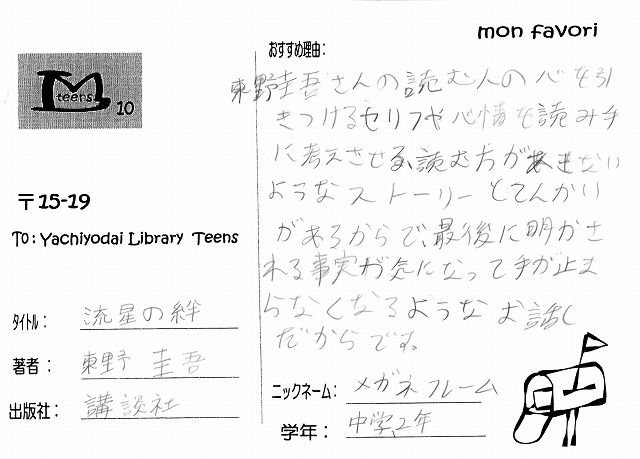 mon favori
おすすめ理由:
東野圭吾さんの読む人の心を引
きつけるセリフや心情を読み手
に考えさせる、読む方があきない
ようなストーリーとてんかい
があるからで、最後に明かさ
れる事実が気になって手が止ま
らなくなるようなお話し
だからです。
ニックネーム: メガネフレーム
学年: 中学2年
teens 10
〒15-19
To: Yachiyodai Library Teens
タイトル: 流星の絆
著者: 東野 圭吾
出版社: 講談社